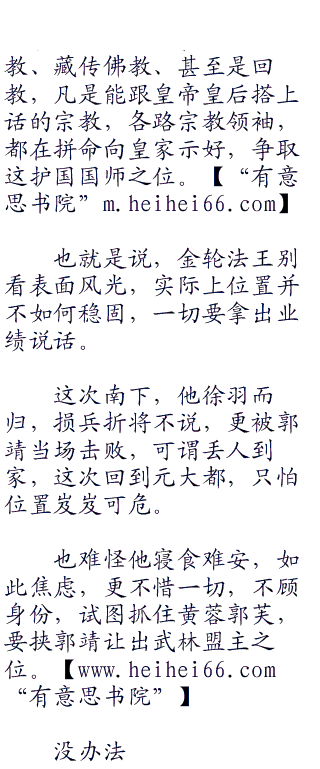 教、藏传佛教、甚至是回
教，凡是能跟皇帝皇后搭上
话的宗教，各路宗教领袖，
都在拼命向皇家示好，争取
这护国国师之位。【“有意
思书院”m.heihei66.com】
也就是说，金轮法王别
看表面风光，实际上位置并
不如何稳固，一切要拿出业
绩说话。
这次南下，他徐羽而
归，损兵折将不说，更被郭
靖当场击败，可谓丢人到
家，这次回到元大都，只怕
位置岌岌可危。
也难怪他寝食难安，如
此焦虑，更不惜一切，不顾
身份，试图抓住黄蓉郭芙，
要挟郭靖让出武林盟主之
位。【www.heihei66.com
“有意思书院”】
没办法